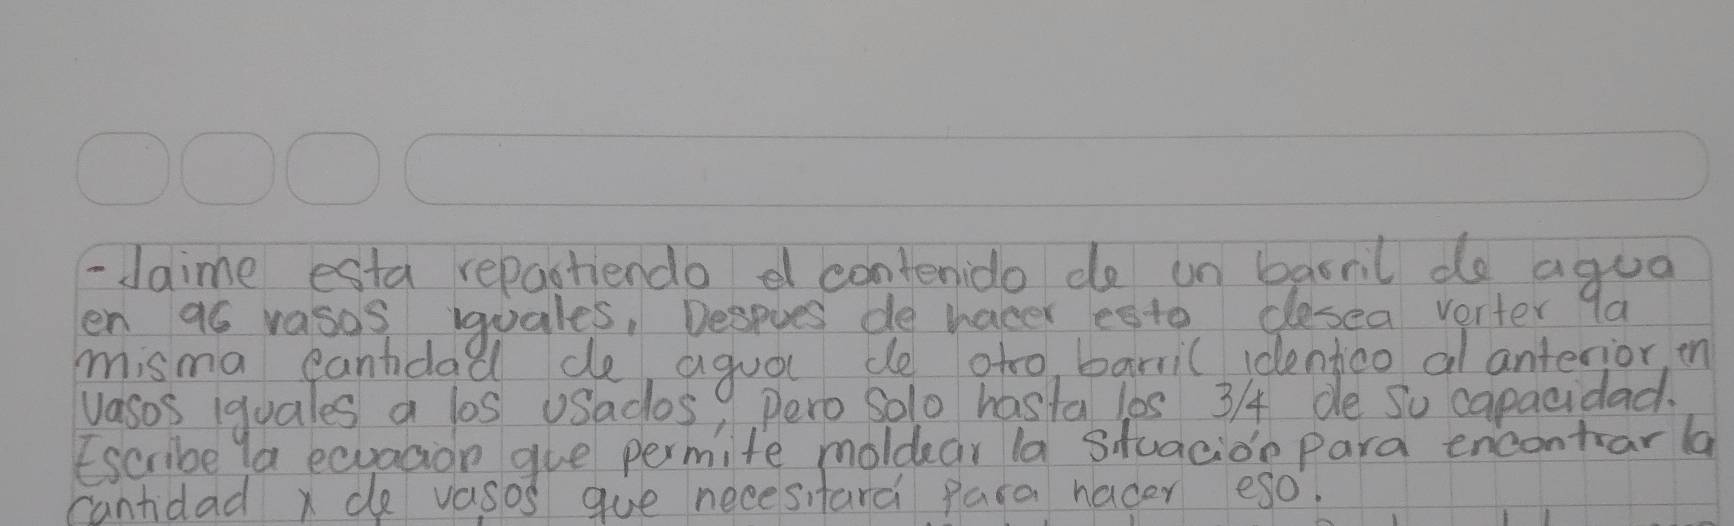 - Jaime esta repartiendo el contenido de un barril de agua
en 96 vasos iguales, Despues de hacer esto desea verter la
misma cantidad de agua de otro barril identico al anterior, en
vasos iguales a los usados, pero solo hasta los 3/4 de su capacidad.
Escribe la ecuación que permite moldear la situación para encontrar la
cantidad x de vasos que necesitará para hacer eso.